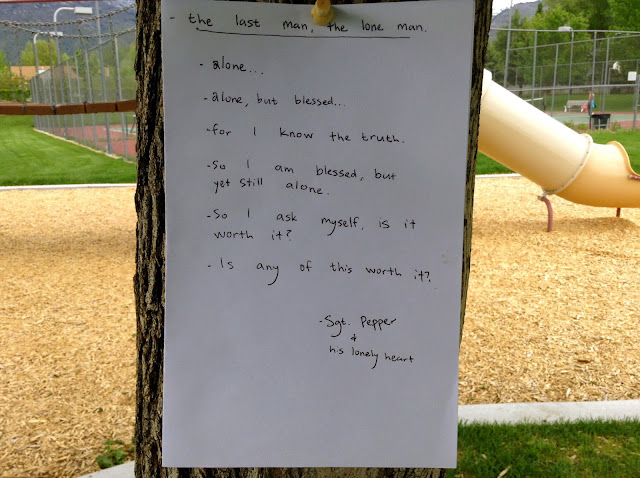 - the last man, the lone man.
- alone...
- alone, but blessed...
- for I know the truth.
- So I am blessed, but
yet still alone.
- So I ask myself, is it
worth it?
- Is any of this worth it?
- Sgt. Pepper
&
his lonely heart